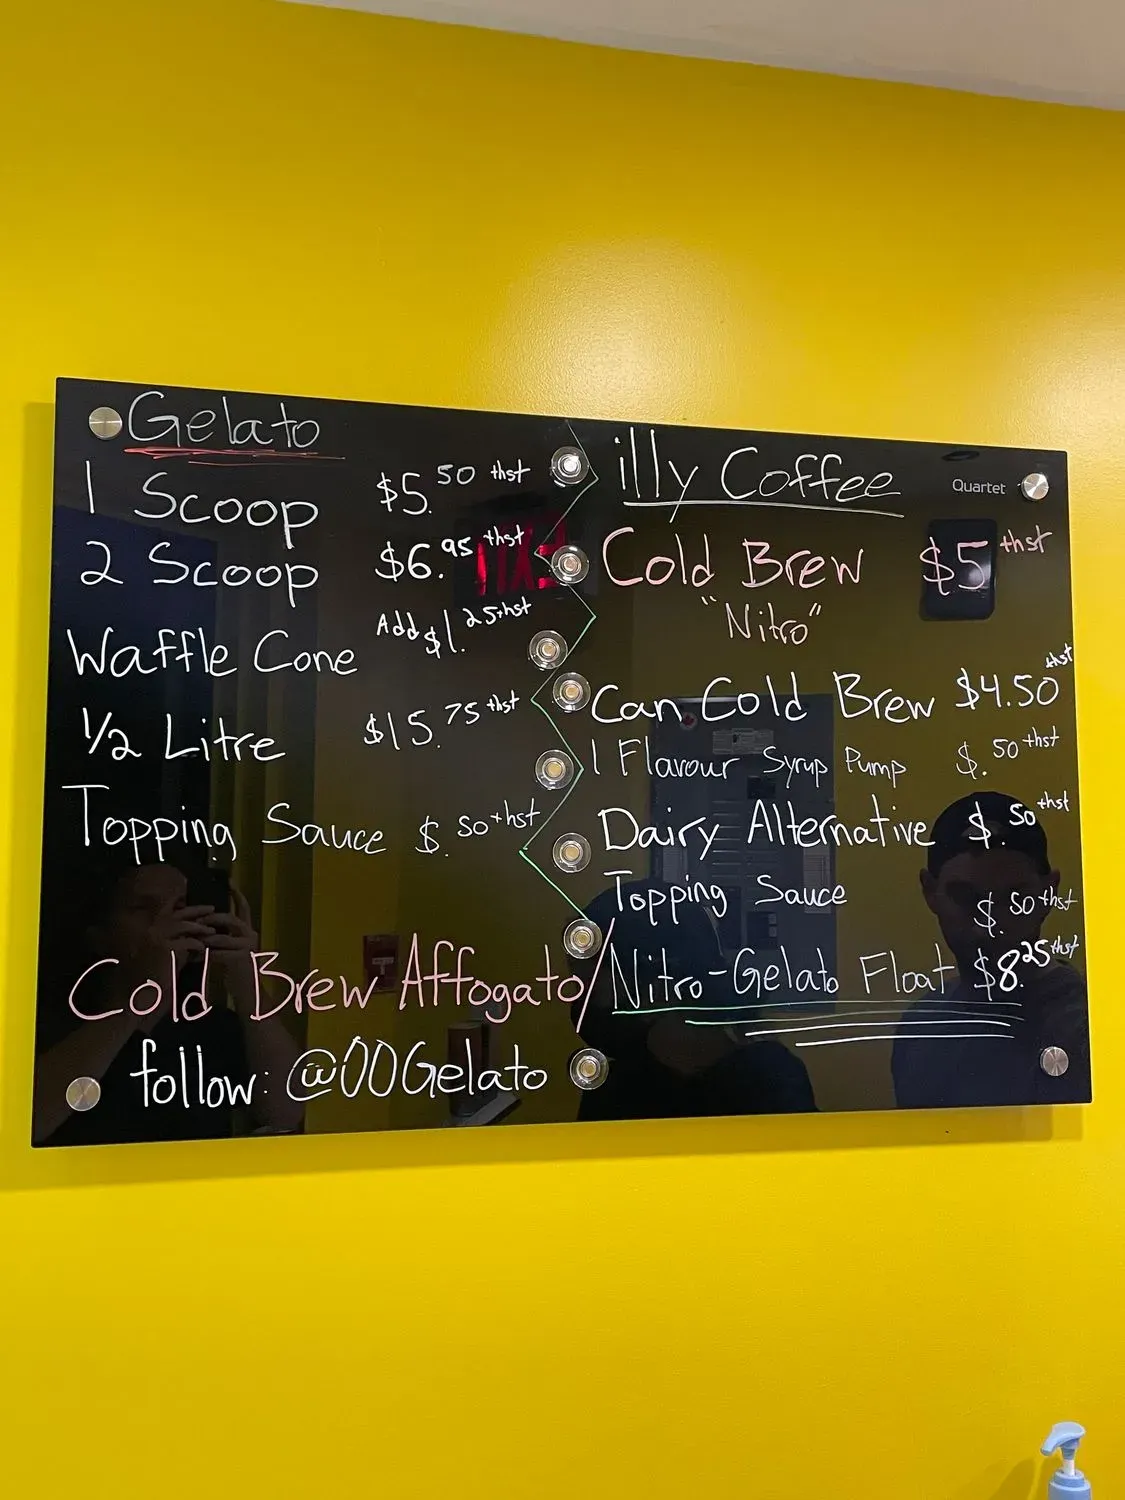 Gelato
1 Scoop $5.50 +hst
2 Scoop $6.95 +hst
Waffle Cone Add $1.25+hst
1/2 Litre $15.75 +hst
Topping Sauce $.50+hst
illy Coffee
Quartet
Cold Brew $5 +hst
"Nitro"
Can Cold Brew $4.50 +hst
1 Flavour Syrup Pump $.50 +hst
Dairy Alternative $.50 +hst
Topping Sauce $.50 +hst
Cold Brew Affogato/Nitro-Gelato Float $8.25 +hst
follow: @00Gelato
EXIT